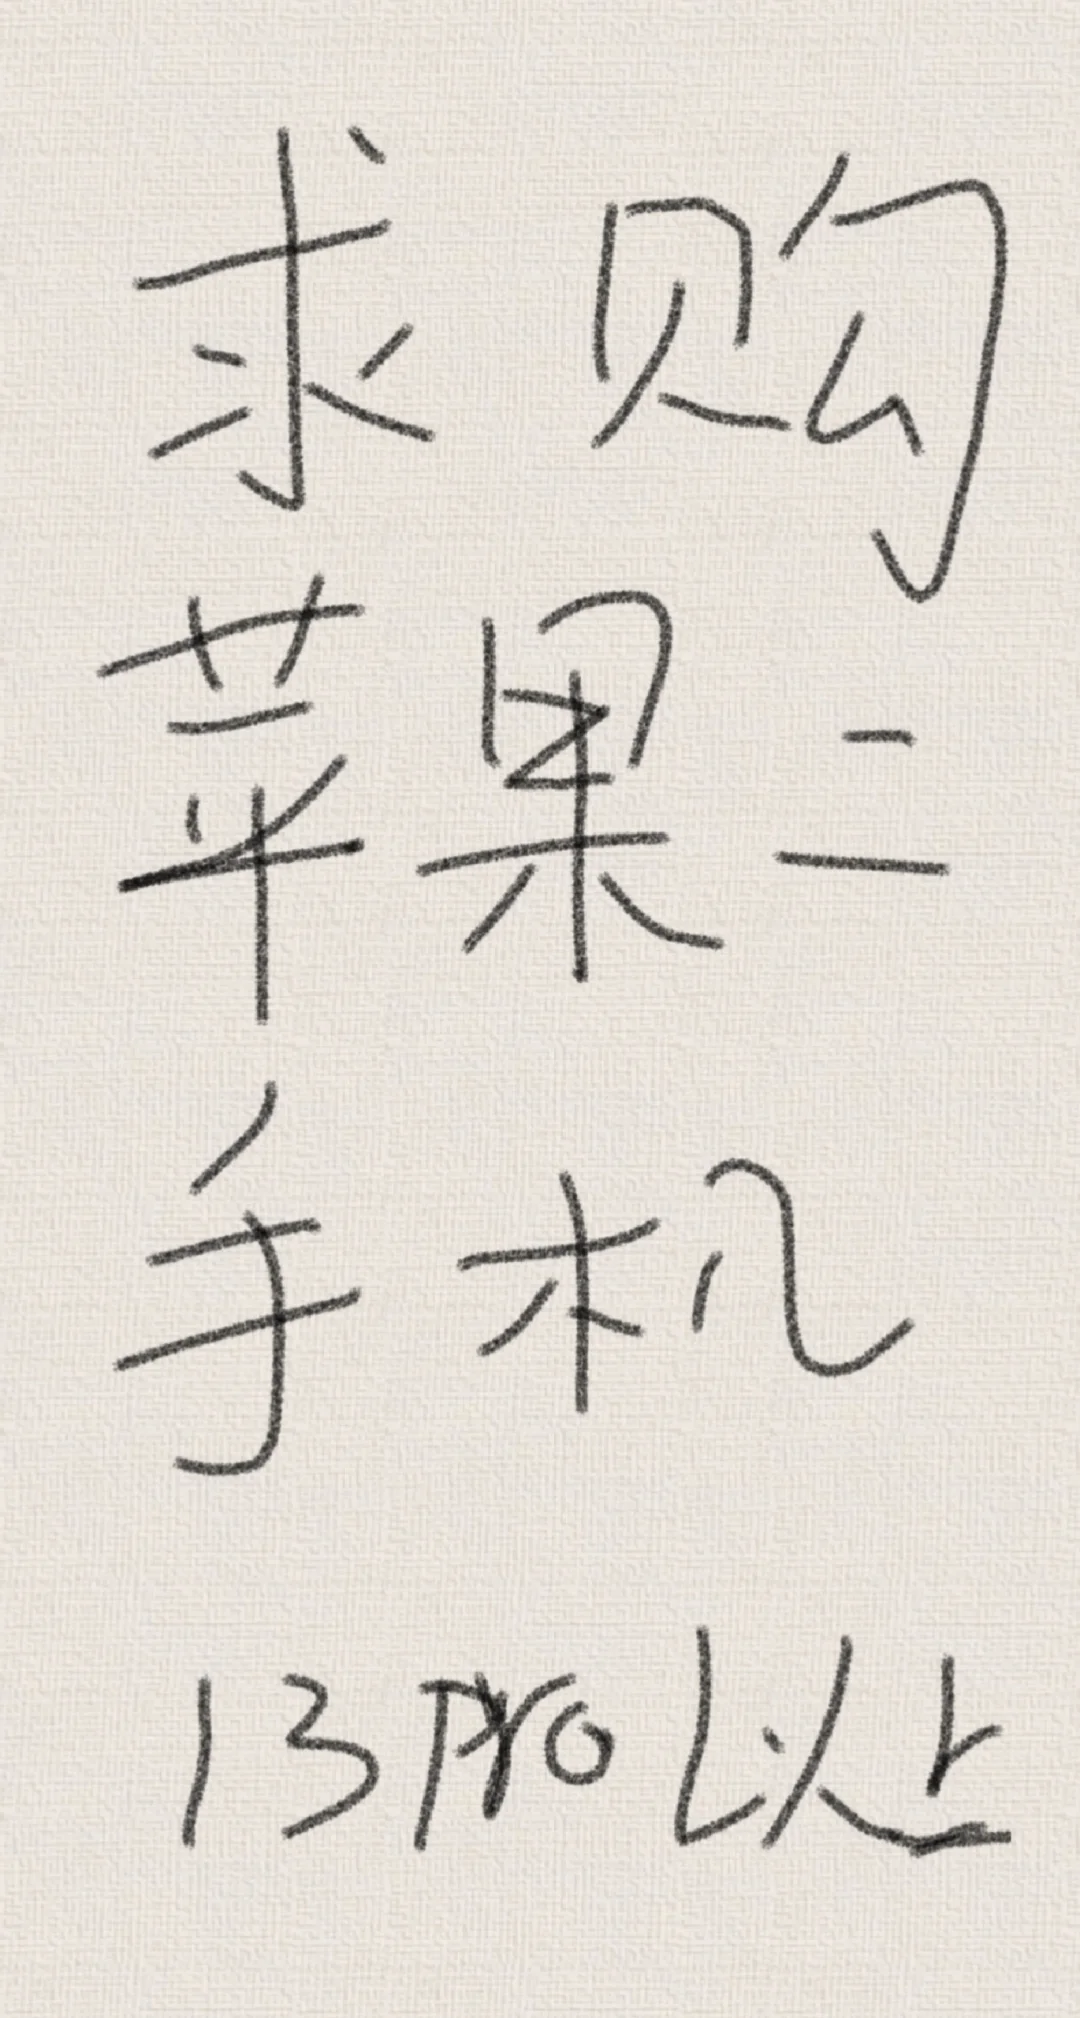 求购
苹果二
手机
13pro以上